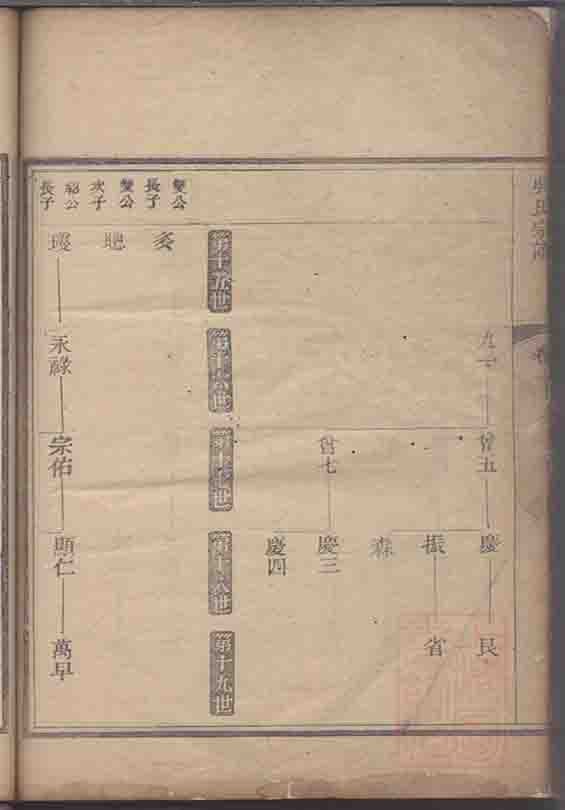 氏宗
九一
曾五
慶
民
振
省
森
曾七
慶三
慶四
第十五世
第十六世
第十七世
第十八世
第十九世
燮公
長子
燮公
次子
公
長子
永祿
宗佑
顯仁
萬早